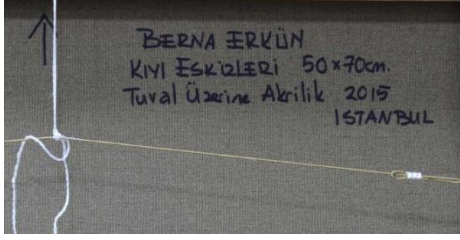 BERNA ERKÜN
KIYI ESKİZLERİ 50x70cm.
Tuval Üzerine Akrilik 2015
ISTANBUL